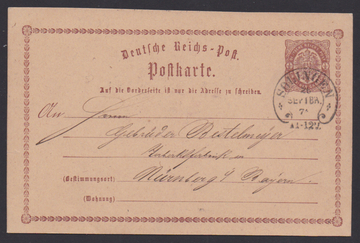 Deutsche Reichs-Post.
Postkarte.
Auf die Vorderseite ist nur die Adresse zu schreiben.
An Herrn
Gebrüder Bestelmeyer
(Bestimmungsort) Nürnberg Bayern
(Wohnung)